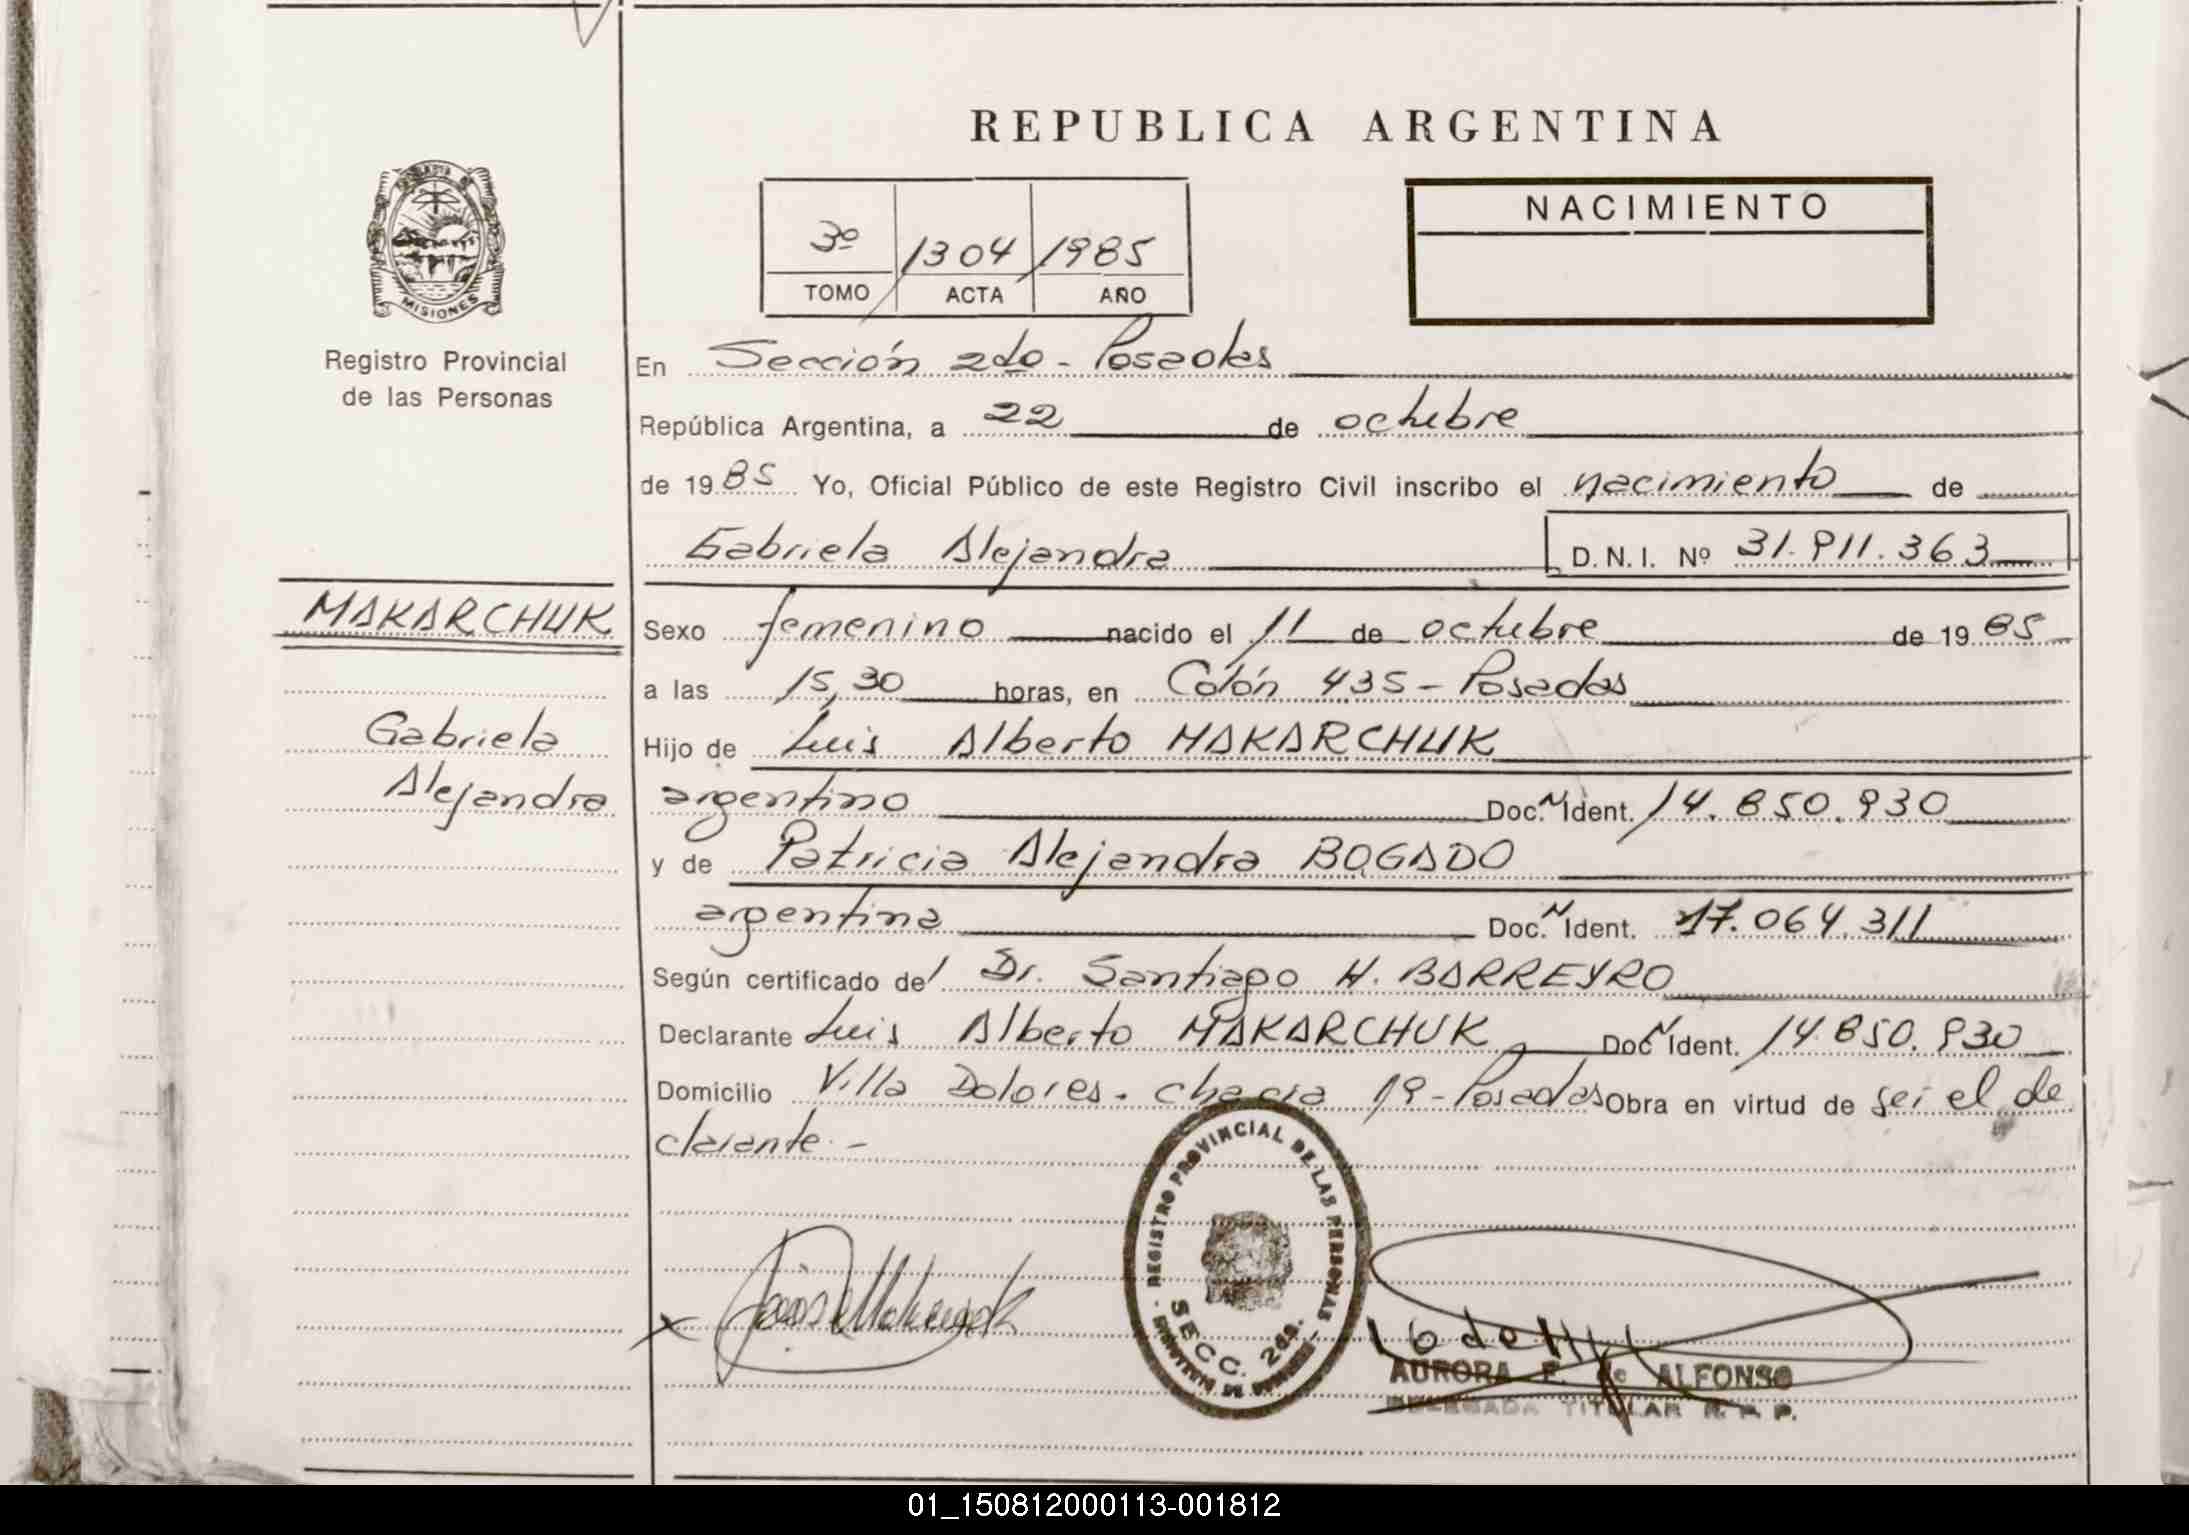 REPUBLICA ARGENTINA
NACIMIENTO
3º 1304 1985
TOMO ACTA AÑO
MISIONES
Registro Provincial
de las Personas
En Sección 2da - Posadas
República Argentina, a 22 de octubre
de 1985 Yo, Oficial Público de este Registro Civil inscribo el nacimiento de
Gabriela Alejandra D.N.I. Nº 31.911.363
MAKARCHUK
Gabriela
Alejandra
Sexo femenino nacido el 11 de octubre de 1985
a las 15,30 horas, en Colón 435 - Posadas
Hijo de Luis Alberto MAKARCHUK
argentino Doc. N Ident. 14.850.930
y de Patricia Alejandra BOGADO
argentina Doc. N Ident. 17.064.311
Según certificado del Dr. Santiago H. BARREYRO
Declarante Luis Alberto MAKARCHUK Doc N Ident. 14.850.930
Domicilio Villa Dolores. chacra - Posadas Obra en virtud de ser el de
clarante.-
REGISTRO PROVINCIAL DE LAS PERSONAS
SECC. 2da.
AURORA F. de ALFONSO
DELEGADA TITULAR R. P. P.
01_150812000113-001812